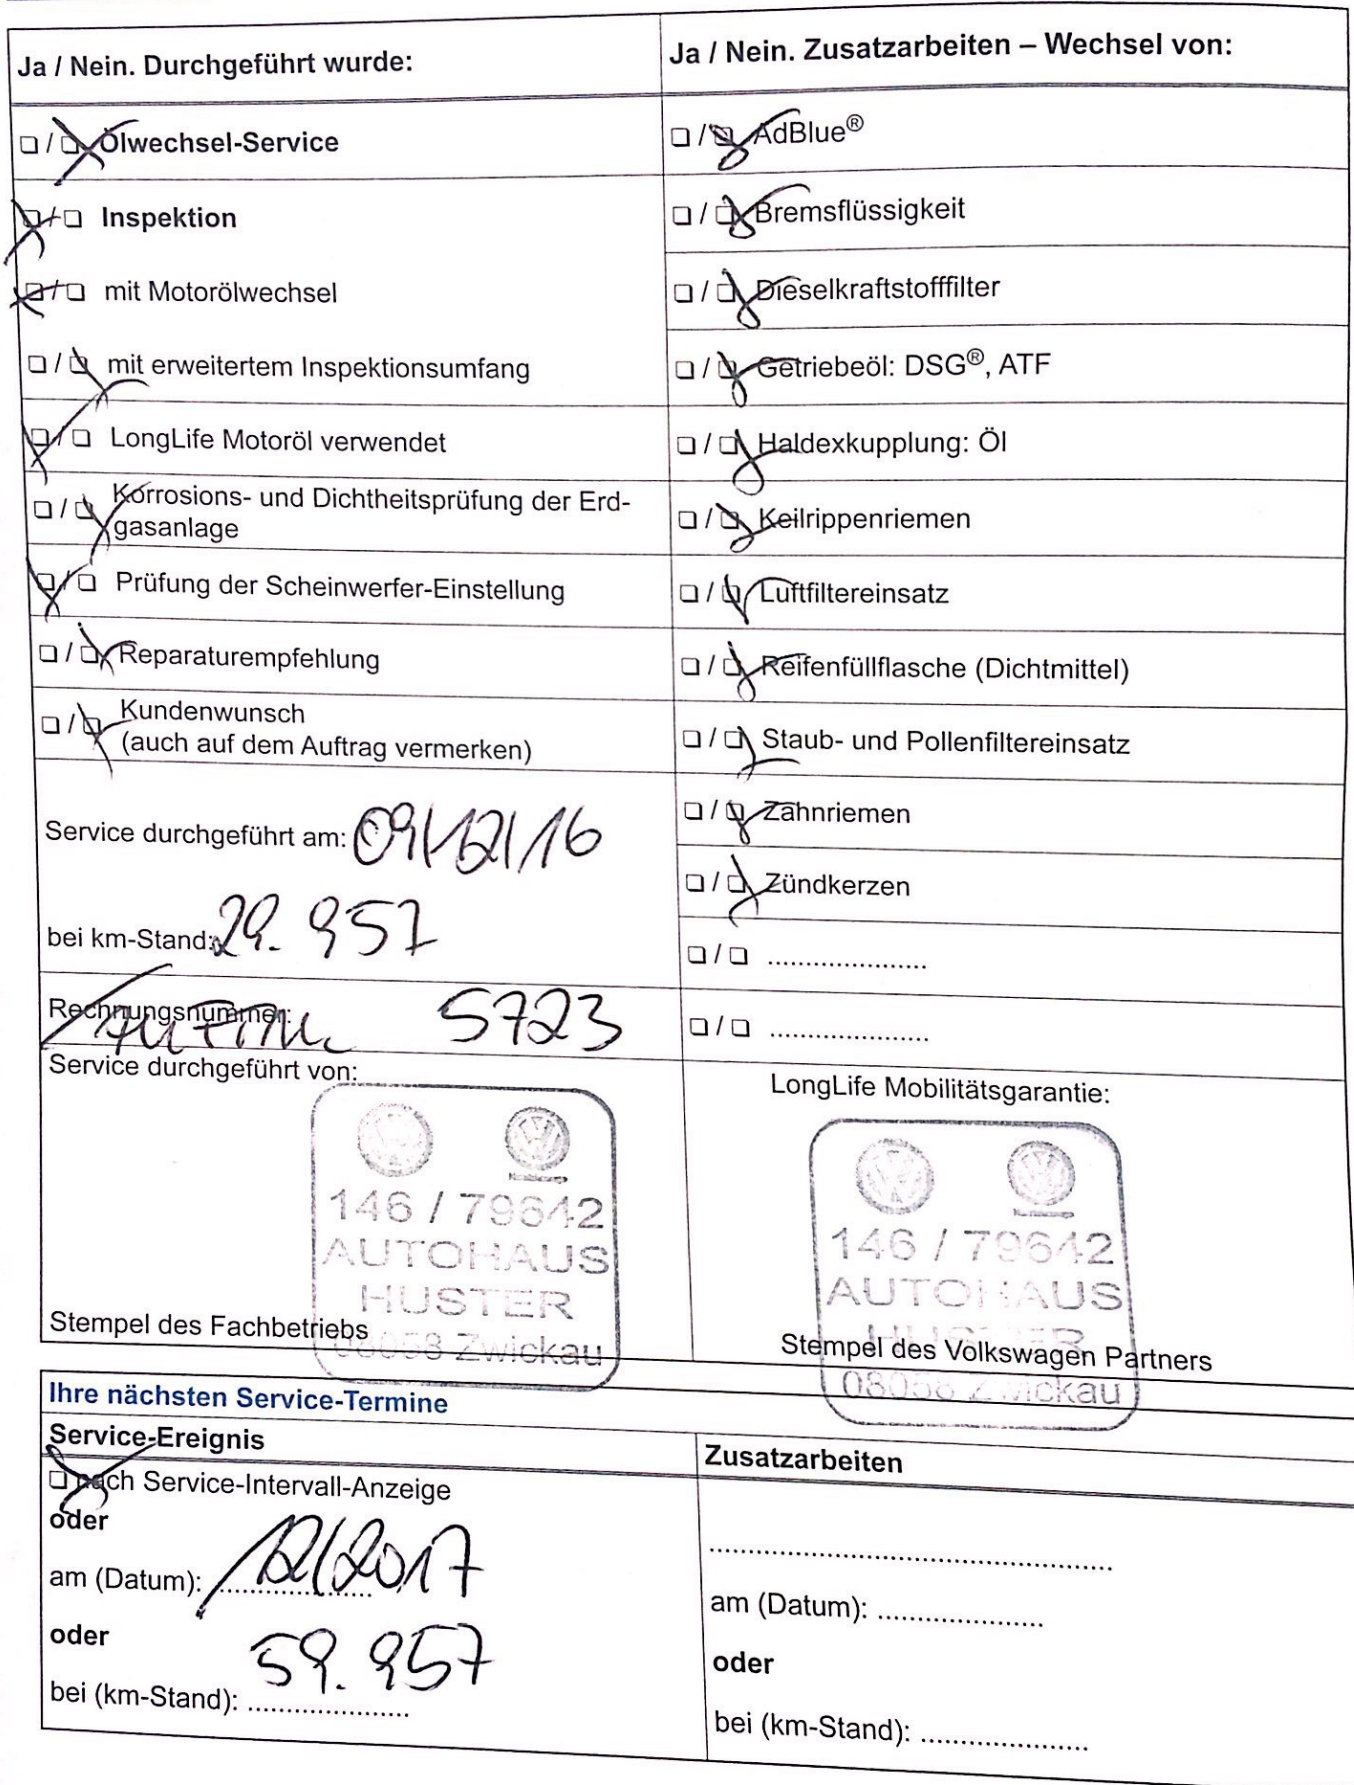 Ja / Nein. Durchgeführt wurde:
❑ / ❑ Ölwechsel-Service
❑ / ❑ Inspektion
❑ / ❑ mit Motorölwechsel
❑ / ❑ mit erweitertem Inspektionsumfang
❑ / ❑ LongLife Motoröl verwendet
❑ / ❑ Korrosions- und Dichtheitsprüfung der Erd-
gasanlage
❑ / ❑ Prüfung der Scheinwerfer-Einstellung
❑ / ❑ Reparaturempfehlung
❑ / ❑ Kundenwunsch
(auch auf dem Auftrag vermerken)
Service durchgeführt am: 09/12/16
bei km-Stand: 29.957
Rechnungsnummer: 5723
Service durchgeführt von:
146 / 79642
AUTOHAUS
HUSTER
08058 Zwickau
Stempel des Fachbetriebs
Ja / Nein. Zusatzarbeiten – Wechsel von:
❑ / ❑ AdBlue®
❑ / ❑ Bremsflüssigkeit
❑ / ❑ Dieselkraftstofffilter
❑ / ❑ Getriebeöl: DSG®, ATF
❑ / ❑ Haldexkupplung: Öl
❑ / ❑ Keilrippenriemen
❑ / ❑ Luftfiltereinsatz
❑ / ❑ Reifenfüllflasche (Dichtmittel)
❑ / ❑ Staub- und Pollenfiltereinsatz
❑ / ❑ Zahnriemen
❑ / ❑ Zündkerzen
❑ / ❑ .....................
❑ / ❑ .....................
LongLife Mobilitätsgarantie:
146 / 79642
AUTOHAUS
HUSTER
08058 Zwickau
Stempel des Volkswagen Partners
Ihre nächsten Service-Termine
Service-Ereignis
❑ nach Service-Intervall-Anzeige
oder
am (Datum): 12/2017
oder
bei (km-Stand): 59.957
Zusatzarbeiten
.....................
am (Datum): .....................
oder
bei (km-Stand): .....................